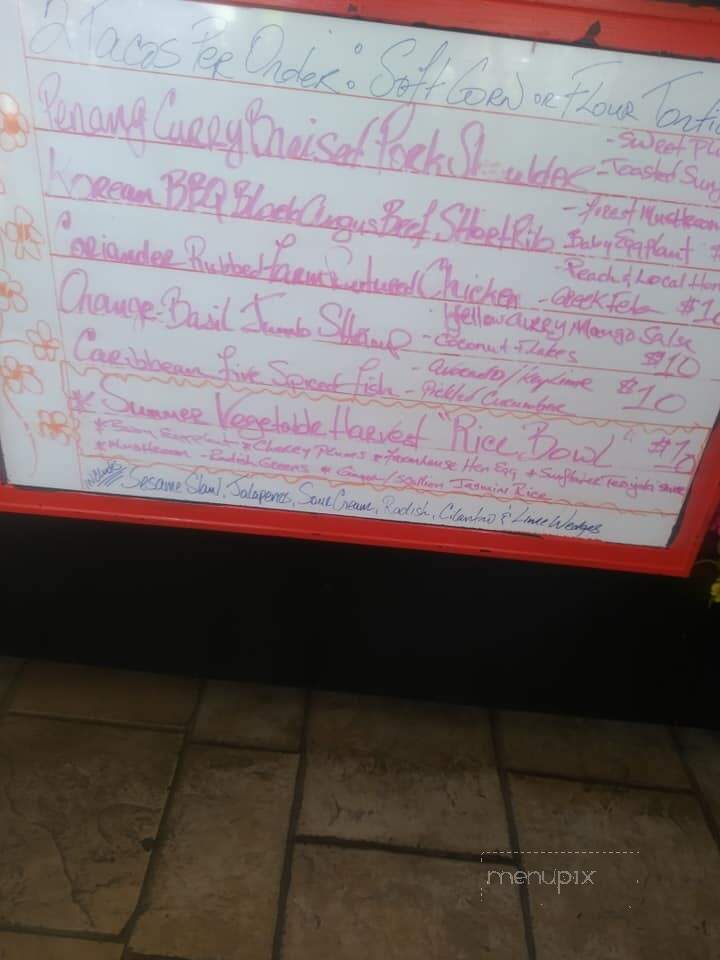 2 Tacos Per Order: Soft Corn or Flour
Penang Curry Braised Pork Shoulder - Sweet
- Toasted
Korean BBQ Black Angus Beef Short Rib - Forest Mushroom
Baby Eggplant
Coriander Rubbed Farm Chicken - Peach & Local
- Greek Feta $1
Orange-Basil Jumbo Shrimp Yellow Curry Mango Salsa
- Coconut Flakes $10
Caribbean Five Spiced Fish - Avocado/Key Lime $10
- Pickled Cucumber
* Summer Vegetable Harvest "Rice Bowl" $10
* Eggplant * Cherry * Farmhouse Hen Egg * Sunflower
* Mushroom - Radish Greens * Ginger/Scallion Jasmine Rice
Sesame Slaw, Jalapenos, Sour Cream, Radish, Cilantro & Lime Wedges
menupix